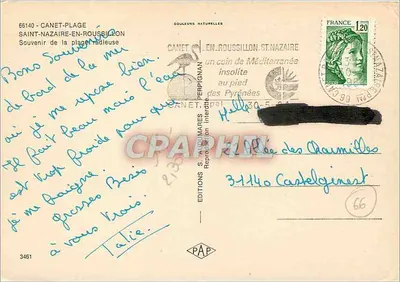 66140 - CANET-PLAGE
SAINT-NAZAIRE-EN-ROUSSILLON
Souvenir de la plage radieuse
COULEURS NATURELLES
Bons Souvenirs
de bord de la mer
où je me repose bien
Il fait beau mais l'eau
est trop froide pour que
je me baigne.
grosses Bises
à vous trois.
Talie
3461
CANET EN ROUSSILLON ST NAZAIRE
un coin de Méditerranée
insolite
au pied
des Pyrénées
FRANCE
1,20
Melle
des Charmilles
31140 Castelginest
66
PAP
CPARAMA